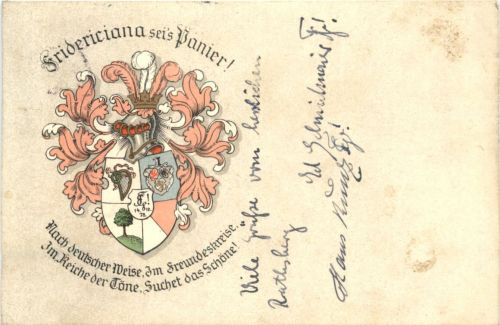 Fridericiana sei's Panier!
Nach deutscher Weise, Im Freundeskreise,
Im Reiche der Töne, Suchet das Schöne!
Viele Grüße vom herrlichen
Rathsberg
Hans